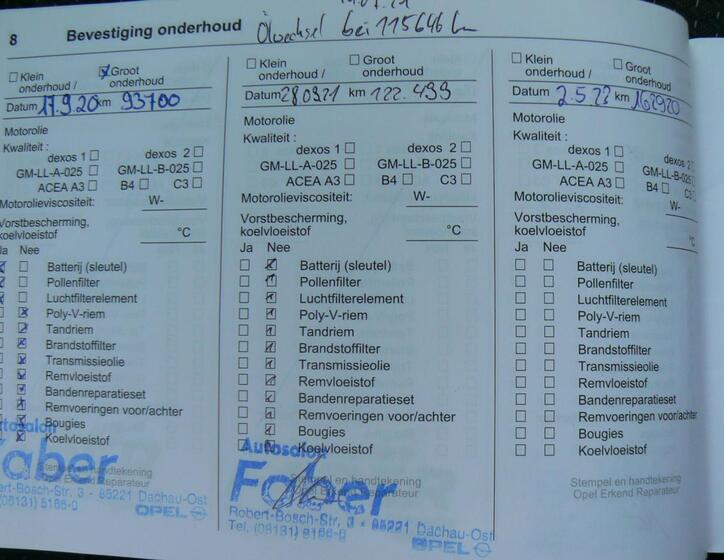 8 Bevestiging onderhoud
Ölwechsel bei 115646 km
Klein onderhoud /
Groot onderhoud
Datum 17.9.20 km 93700
Motorolie
Kwaliteit :
dexos 1 dexos 2
GM-LL-A-025 GM-LL-B-025
ACEA A3 B4 C3
Motorolieviscositeit: W-
Vorstbescherming,
koelvloeistof °C
Ja Nee
Batterij (sleutel)
Pollenfilter
Luchtfilterelement
Poly-V-riem
Tandriem
Brandstoffilter
Transmissieolie
Remvloeistof
Bandenreparatieset
Remvoeringen voor/achter
Bougies
Koelvloeistof
Stempel en handtekening
Opel Erkend Reparateur
Faber
Robert-Bosch-Str. 3 - 85221 Dachau-Ost
OPEL
Klein
onderhoud /
Groot
onderhoud
Datum 280921 km 122.499
Motorolie
Kwaliteit :
dexos 1 dexos 2
GM-LL-A-025 GM-LL-B-025
ACEA A3 B4 C3
Motorolieviscositeit: W-
Vorstbescherming,
koelvloeistof °C
Ja Nee
Batterij (sleutel)
Pollenfilter
Luchtfilterelement
Poly-V-riem
Tandriem
Brandstoffilter
Transmissieolie
Remvloeistof
Bandenreparatieset
Remvoeringen voor/achter
Bougies
Koelvloeistof
Autosalon
Faber
Stempel en handtekening
Opel Erkend Reparateur
Robert-Bosch-Str. 3 - 85221 Dachau-Ost
OPEL
Klein
onderhoud /
Groot
onderhoud
Datum 2.5.23 km 162920
Motorolie
Kwaliteit :
dexos 1 dexos 2
GM-LL-A-025 GM-LL-B-025
ACEA A3 B4 C3
Motorolieviscositeit: W-
Vorstbescherming,
koelvloeistof °C
Ja Nee
Batterij (sleutel)
Pollenfilter
Luchtfilterelement
Poly-V-riem
Tandriem
Brandstoffilter
Transmissieolie
Remvloeistof
Bandenreparatieset
Remvoeringen voor/achter
Bougies
Koelvloeistof
Stempel en handtekening
Opel Erkend Reparateur